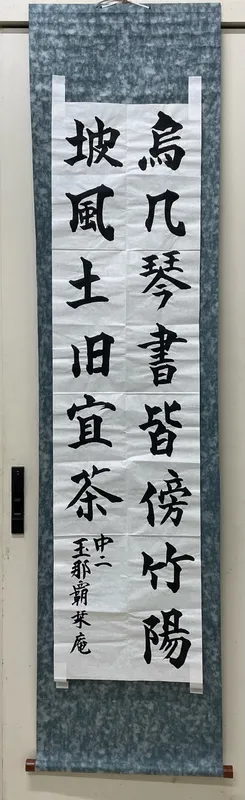 烏几琴書皆傍竹陽
坡風土旧宜茶
中二
玉那覇栞庵